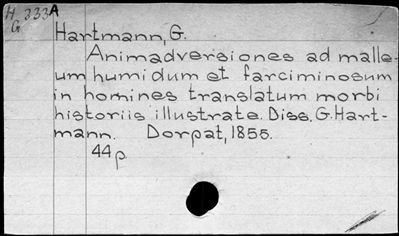 H 333A
G
Hartmann, G.
Animadversiones ad malle-
um humidum et farciminosum
in homines translatum morbi
historiis illustrate. Diss. G. Hart-
mann. Dorpat, 1855.
44p